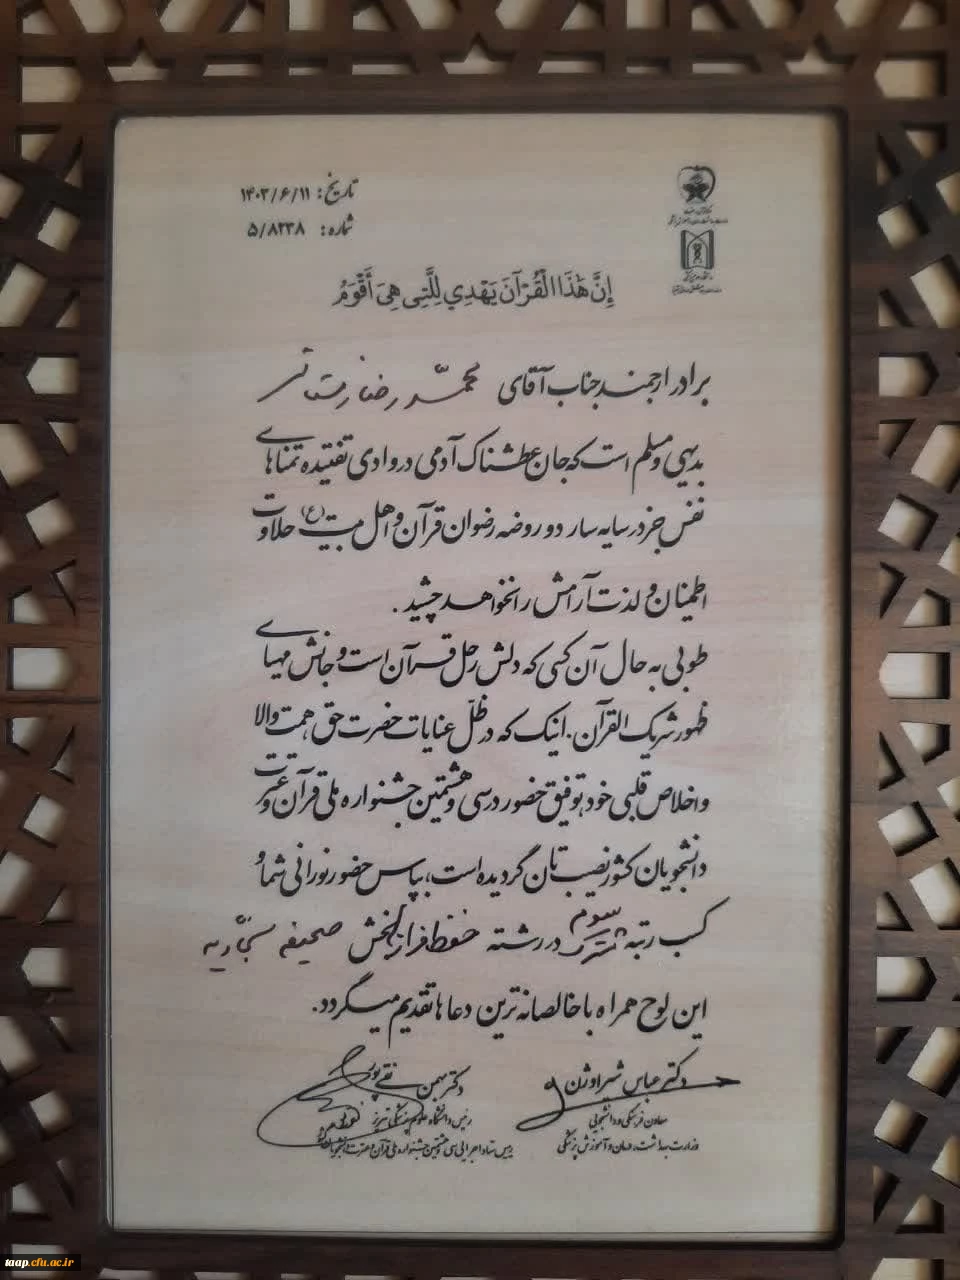 تاریخ: ۱۴۰۳/۶/۱۱
شماره: ۵/۸۲۳۸
إِنَّ هَٰذَا الْقُرْآنَ يَهْدِي لِلَّتِي هِيَ أَقْوَمُ
برادر ارجمند جناب آقای محمّدرضا رستاقی
بدیهی و مسلم است که جان عطشناک آدمی در وادی تفتیده تمناهای
نفس جز در سایه سار دو روضه رضوان قرآن و اهل بیت (ع) حلاوت
اطمینان و لذت آرامش را نخواهد چشید.
طوبی به حال آن کسی که دلش رحل قرآن است و جانش مهیای
ظهور شریک القرآن. اینک که در ظلّ عنایات حضرت حق، همت والا
و اخلاص قلبی خود، توفیق حضور در سی و هشتمین جشنواره ملی قرآن و عترت
دانشجویان کشور نصیب تان گردیده است، بپاس حضور نورانی شما و
کسب رتبه سوم در رشته حفظ فرازهای صحیفه سجّادیه
این لوح همراه با خالصانه ترین دعاها تقدیم میگردد.
دکتر عباس شیراوژن
معاون فرهنگی و دانشجویی
وزارت بهداشت، درمان و آموزش پزشکی
دکتر بهمن نقی پور
رئیس دانشگاه علوم پزشکی تبریز
رییس ستاد اجرایی سی و هشتمین جشنواره ملی قرآن و عترت دانشجویان
taap.cfu.ac.ir